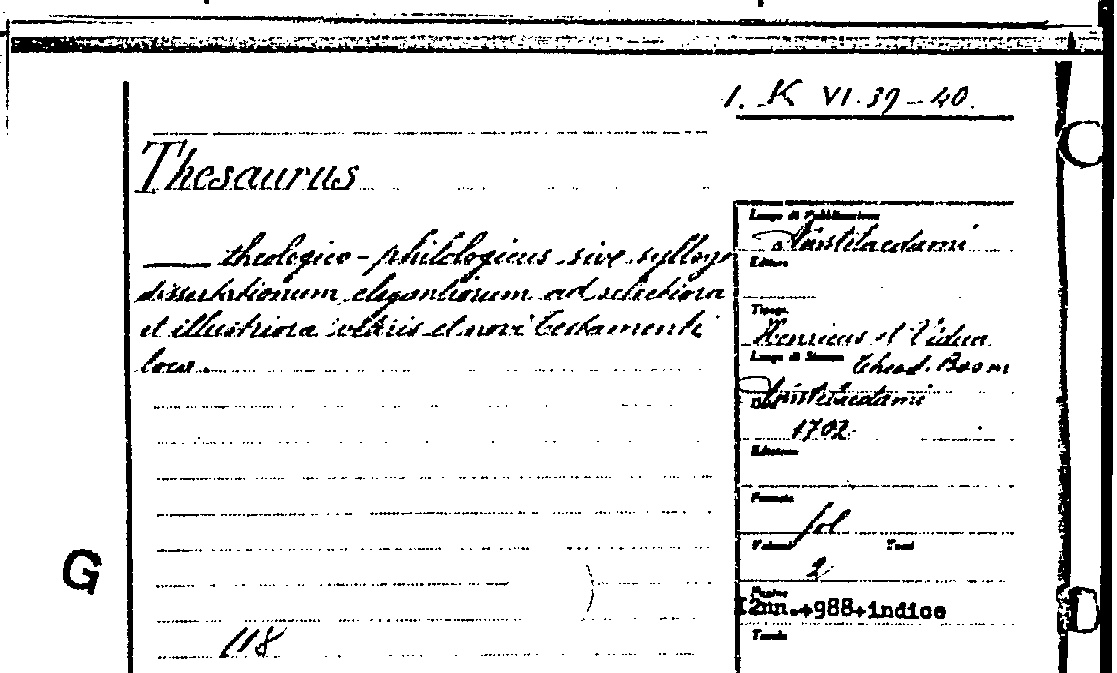 1. K VI. 39-40.
Thesaurus
theologico-philologicus sive sylloge
dissertationum elegantiorum ad selectiora
et illustriora veteris et novi testamenti
loca.
118
G
Luogo di Pubblicazione
Amstelaedami
Editore
Tipogr.
Henricus et Vidua
Luogo di Stampa
Theod. Boom
Amstelaedami
Data
1702
Edizione
Formato
fol
Volumi
Tomi
2
Pagine
12nn.+988+indice
Tavole